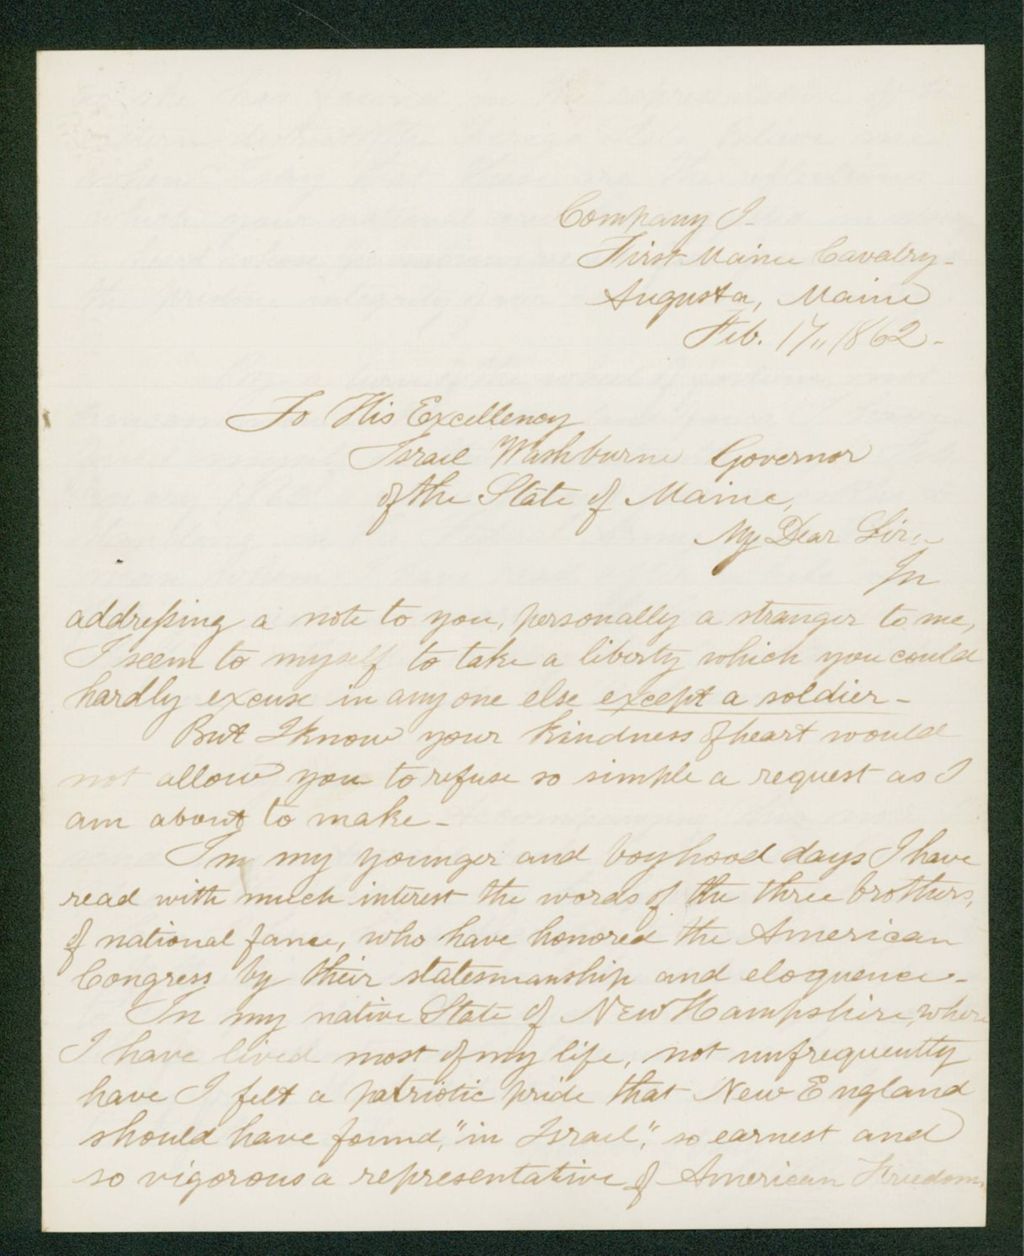 Company I-
First Maine Cavalry-
Augusta, Maine
Feb. 17,, 1862-
To His Excellency
Israel Washburne Governor
of the State of Maine,
My Dear Sir,-
In
addressing a note to you, personally a stranger to me,
I seem to myself to take a liberty which you could
hardly excuse in any one else except a soldier-
But I know your kindness of heart would
not allow you to refuse so simple a request as I
am about to make-
In my younger and boyhood days I have
read with much interest the words of the three brothers,
of national fame, who have honored the American
Congress by their statesmanship and eloquence-
In my native State of New Hampshire, where
I have lived most of my life, not unfrequently
have I felt a patriotic pride that New England
should have found, "in Israel", so earnest and
so vigorous a representative of American Freedom,